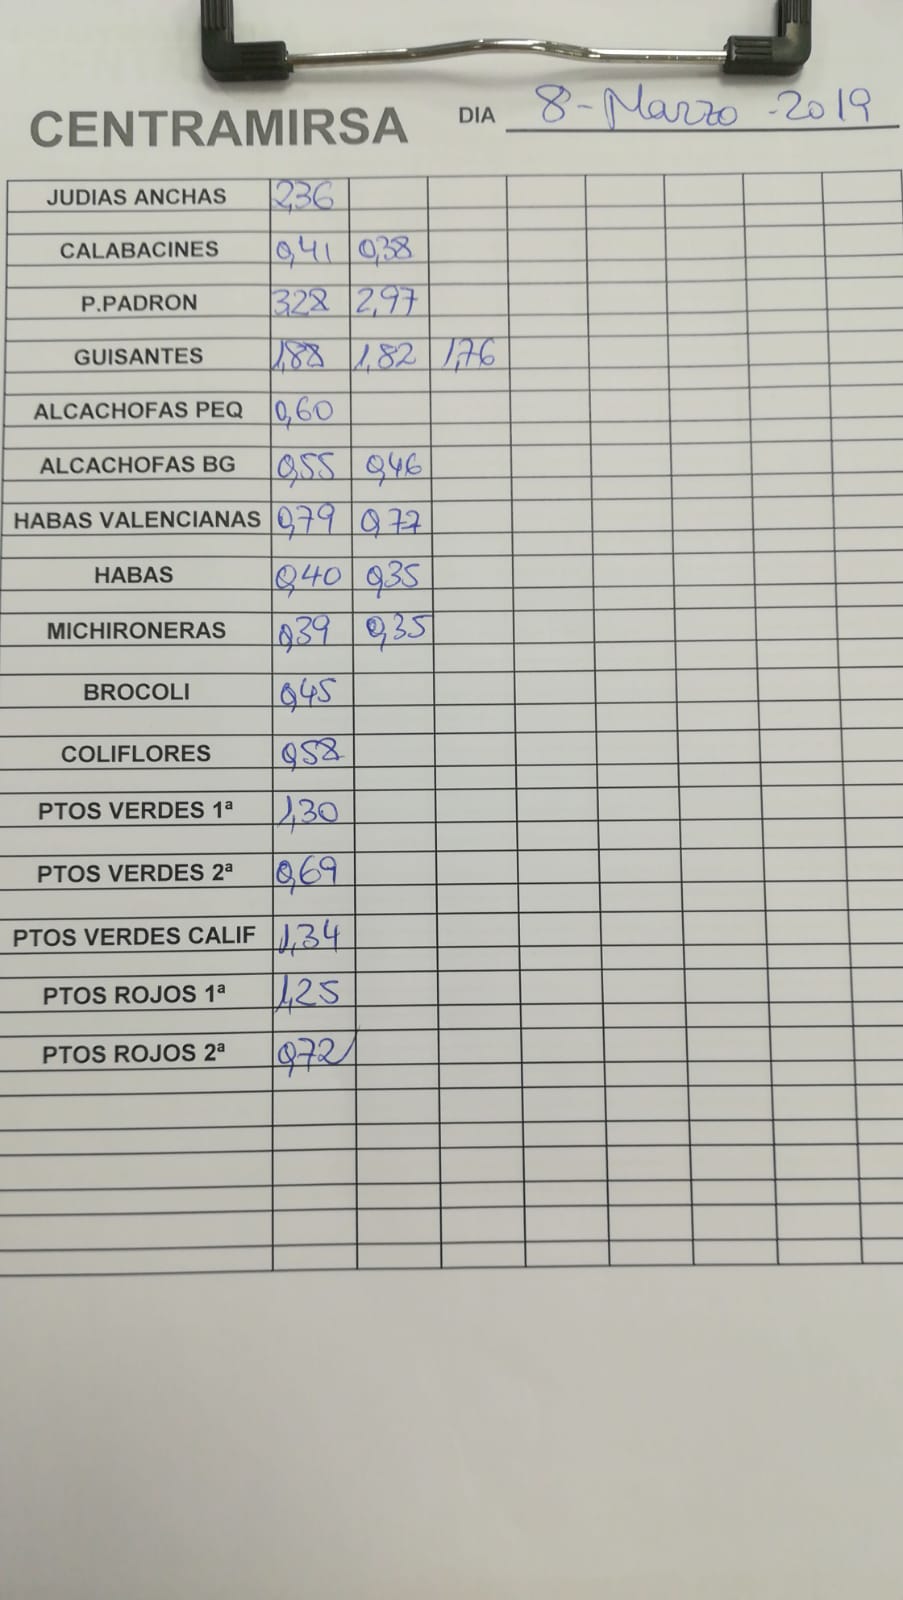 CENTRAMIRSA DIA 8-Marzo-2019
JUDIAS ANCHAS 2,36
CALABACINES 0,41 0,38
P.PADRON 3,28 2,97
GUISANTES 1,88 1,82 1,76
ALCACHOFAS PEQ 0,60
ALCACHOFAS BG 0,55 0,46
HABAS VALENCIANAS 0,79 0,77
HABAS 0,40 0,35
MICHIRONERAS 0,39 0,35
BROCOLI 0,45
COLIFLORES 0,58
PTOS VERDES 1ª 1,30
PTOS VERDES 2ª 0,69
PTOS VERDES CALIF 1,34
PTOS ROJOS 1ª 1,25
PTOS ROJOS 2ª 0,72